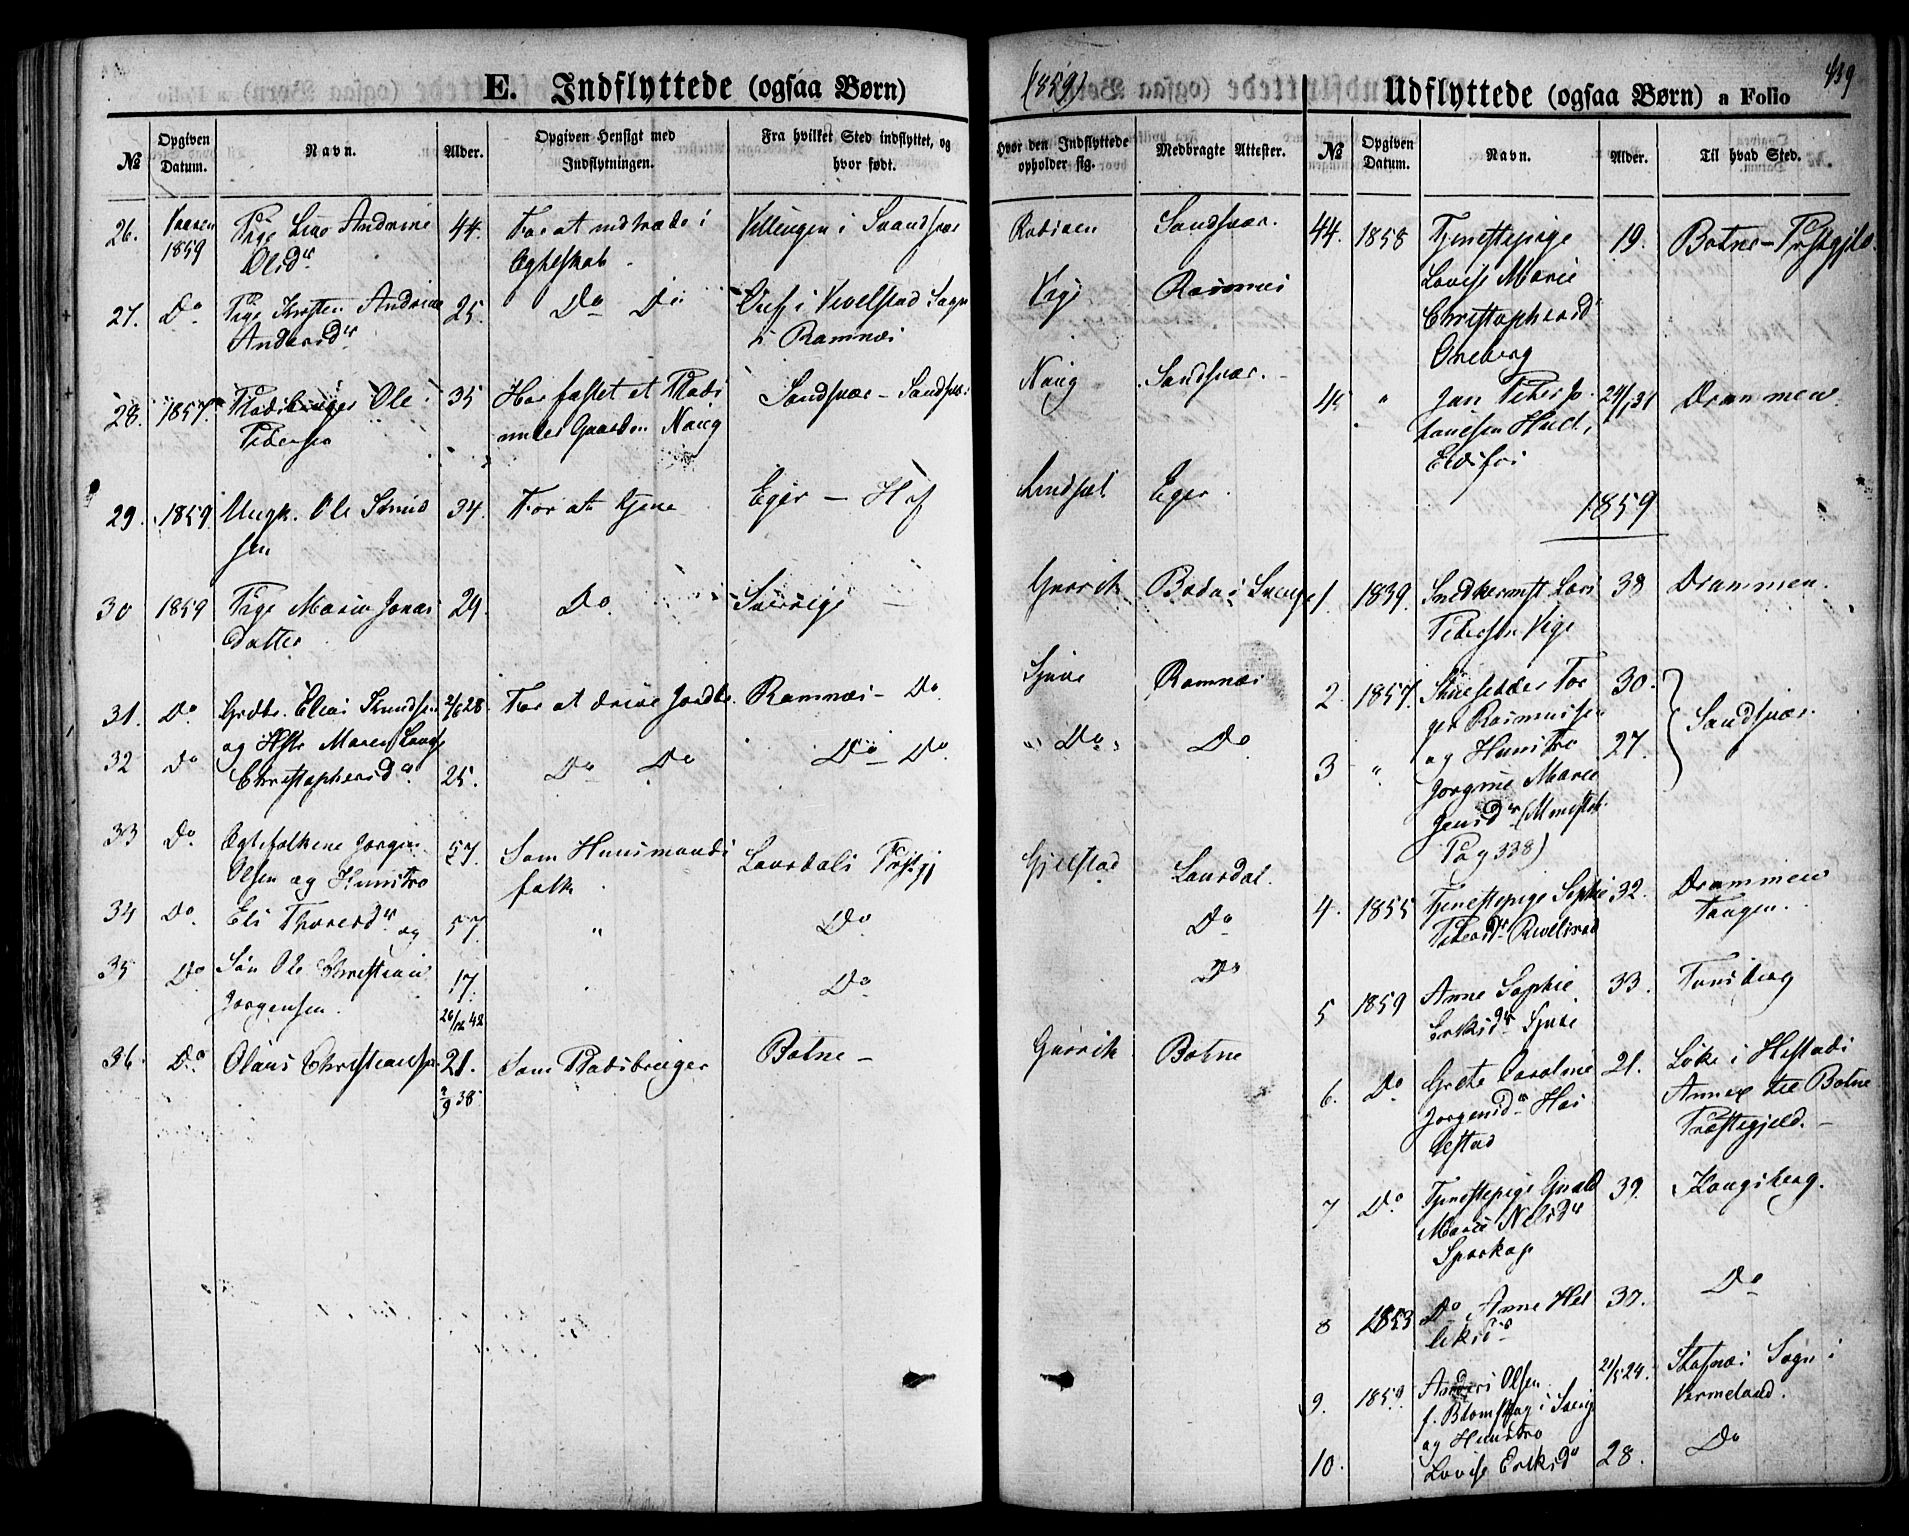 E. Indflyttede (ogsaa Børn)
(1859)
Udflyttede (ogsaa Børn) a Folio
439
№
Opgiven Datum.
Navn.
Alder.
Opgiven Hensigt med Indflytningen.
Fra hvilket Sted indflyttet, og hvor født.
Hvor den Indflyttede opholder sig.
Medbragte Attester.
26. Vaaren 1859 Pige Andrine Olsdr 44. For at indtræde i Egteskab. i Sandsvær Sandsvær.
27. Do Pige Kirsten Andrine Andersdr 25. Do Do i Vivelstad Sogn i Ramnæs Vige Ramnæs
28. 1857. Pladsbruger Ole Pedersen 35 Har fæstet et Plads under Gaarden Haug Sandsvær – Sandsvær Haug Sandsvær.
29. 1859 Ungk. Ole 34. For at tjene Eger – Hof Eger.
30 1859 Pige Maria Jonas datter 29. Do. Sverrige – Gunrik Boda i Sverige
31. Do Grdbr. Elias Knudsen 2/6 28 For at drive Jordbr. Ramnæs – Do Ramnæs
32 Do og Hstr Maren Christophersdr. 25. Do Do Do – Do. Do Do
33 Do Egtefolkene Jørgen Olsen og Hunstro 57. Som Huusmands folk Laurdals Prstgj Gjelstad Laurdal.
34 Do. Eli Thoresdr og 57 " Do Do
35 Do Søn Ole Christian Jørgensen. 17. 26/12 42 Do Do
36. Do. Olaus Christiansen 21. 2/9 38 Som Pladsbruger Botne – Gunrik Botne
№
Opgiven Datum.
Navn.
Alder.
Til hvad Sted.
44. 1858 Tjenestepige Lovise Marie Christophersdr Oreberg 19. Botne – Prstgjld.
45 " Jan Peter Eidsfos 24/1 31 Drammen.
1859
1. 1839. Snedkermst Lars Pedersen Vige 38 Drammen.
2. 1857. Rasmussen 30. Sandsvær.
3 " og Hunstro Jørgine Marie Jensdr (Ministb. Pag 338) 27.
4. 1855 Tjenestepige Sophie Pedersdr 32. Drammen Tangen.
5 1859 Anne Sophie Eriksdr 33. Tønsberg
6. Do Grete Caroline Jørgensdr 21. i Hestads Annex til Botne Præstegjeld. –
7 Do Tjenestepige Marie Nilsdr 39. Kongsberg.
8 1853 Do Anne 37. Do
9. 1859. Anders Olsen f. i Sverige 21/5 24. Sogn i Vermeland.
10. og Hunstro Lovise Eriksdr 28. Do